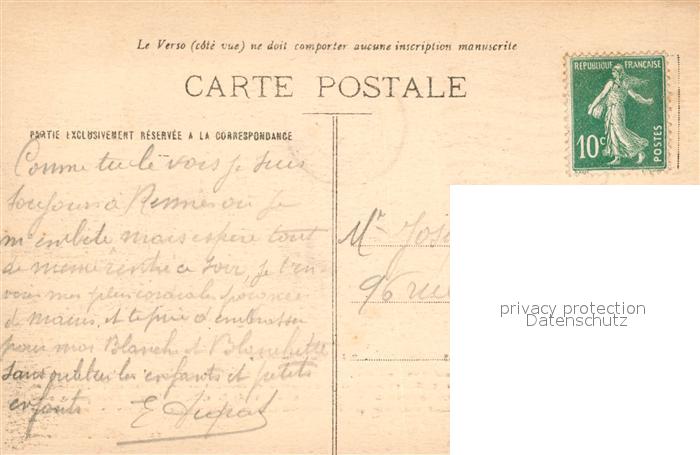 Le Verso (côté vue) ne doit comporter aucune inscription manuscrite
CARTE POSTALE
RÉPUBLIQUE FRANÇAISE
10c
POSTES
PARTIE EXCLUSIVEMENT RÉSERVÉE A LA CORRESPONDANCE
Comme tu le vois je suis
toujours à Rennes ou je
m'embète mais espere tout
de meme rentré ce soir, je t'en
voie mes plus cordiales poignées
de mains, et te prie d'embrasser
pour moi Blanche et Blanchette
sans oublier les enfants et petits
enfants
E
Mr
96 rue
privacy protection
Datenschutz